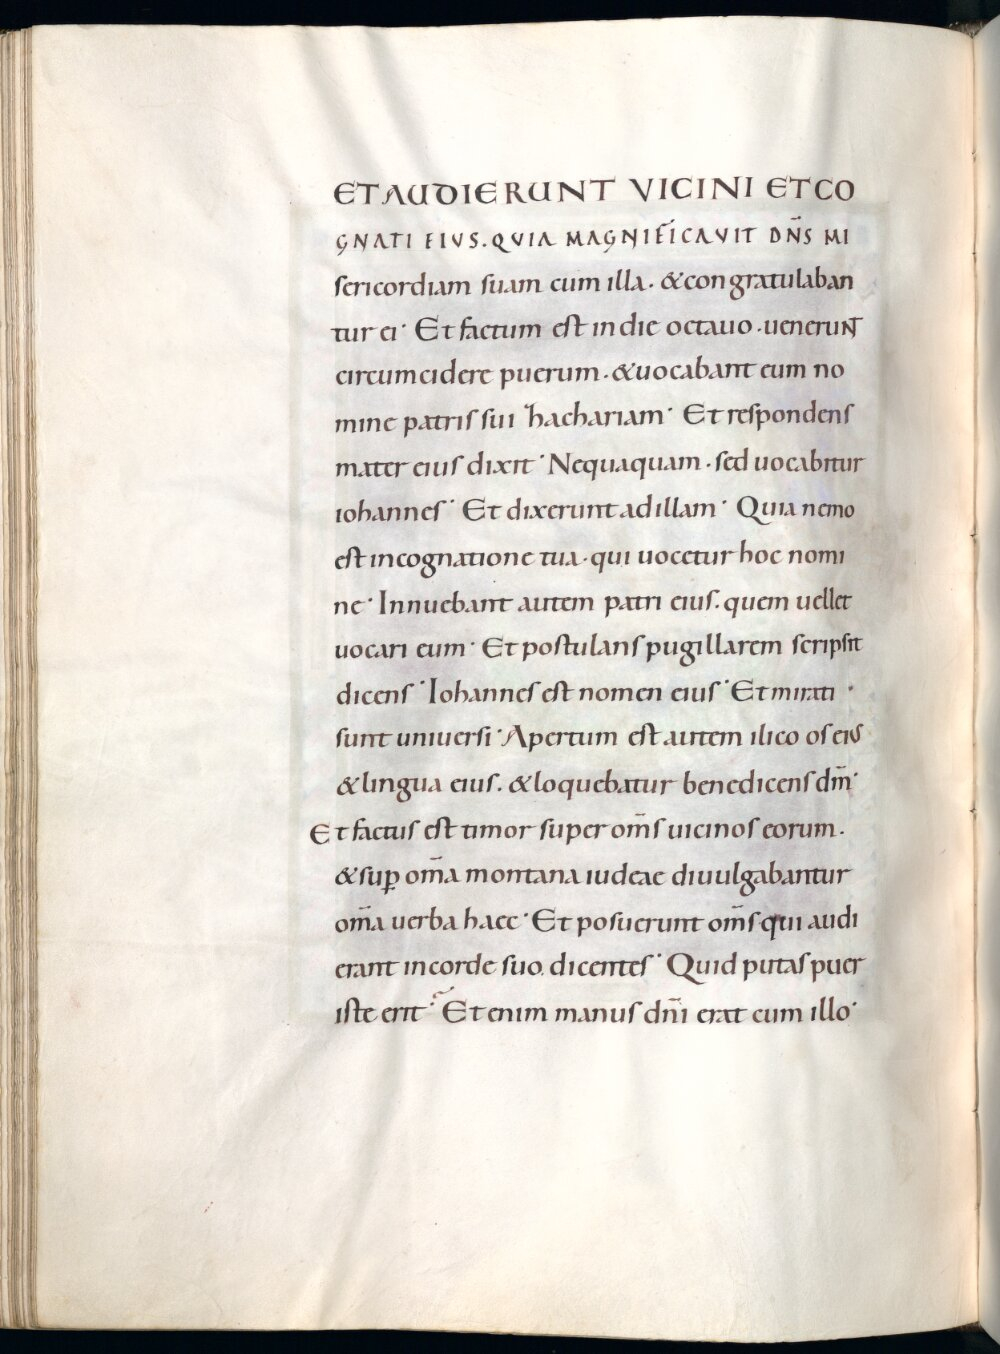 ET AUDIERUNT VICINI ET CO
GNATI EIVS. QVIA MAGNIFICAVIT DN̄S MI
sericordiam suam cum illa. & congratulaban
tur ei· Et factum est in die octauo. uenerunt
circumcidere puerum. & uocabant eum no
mine patris sui hachariam· Et respondens
mater eius dixit· Nequaquam. sed uocabitur
iohannes· Et dixerunt ad illam· Quia nemo
est in cognatione tua. qui uocetur hoc nomi
ne· Innuebant autem patri eius. quem uellet
uocari eum· Et postulans pugillarem scripsit
dicens· Iohannes est nomen eius· Et mirati ·
sunt uniuersi· Apertum est autem ilico os eius
& lingua eius. & loquebatur benedicens dm̄·
Et factus est timor super om̄s uicinos eorum.
& sup̲ om̄a montana iudeae diuulgabantur
om̄a uerba haec· Et posuerunt om̄s qui audi
erant in corde suo. dicentes· Quid putas puer
iste erit? Et enim manus dn̄i erat cum illo·